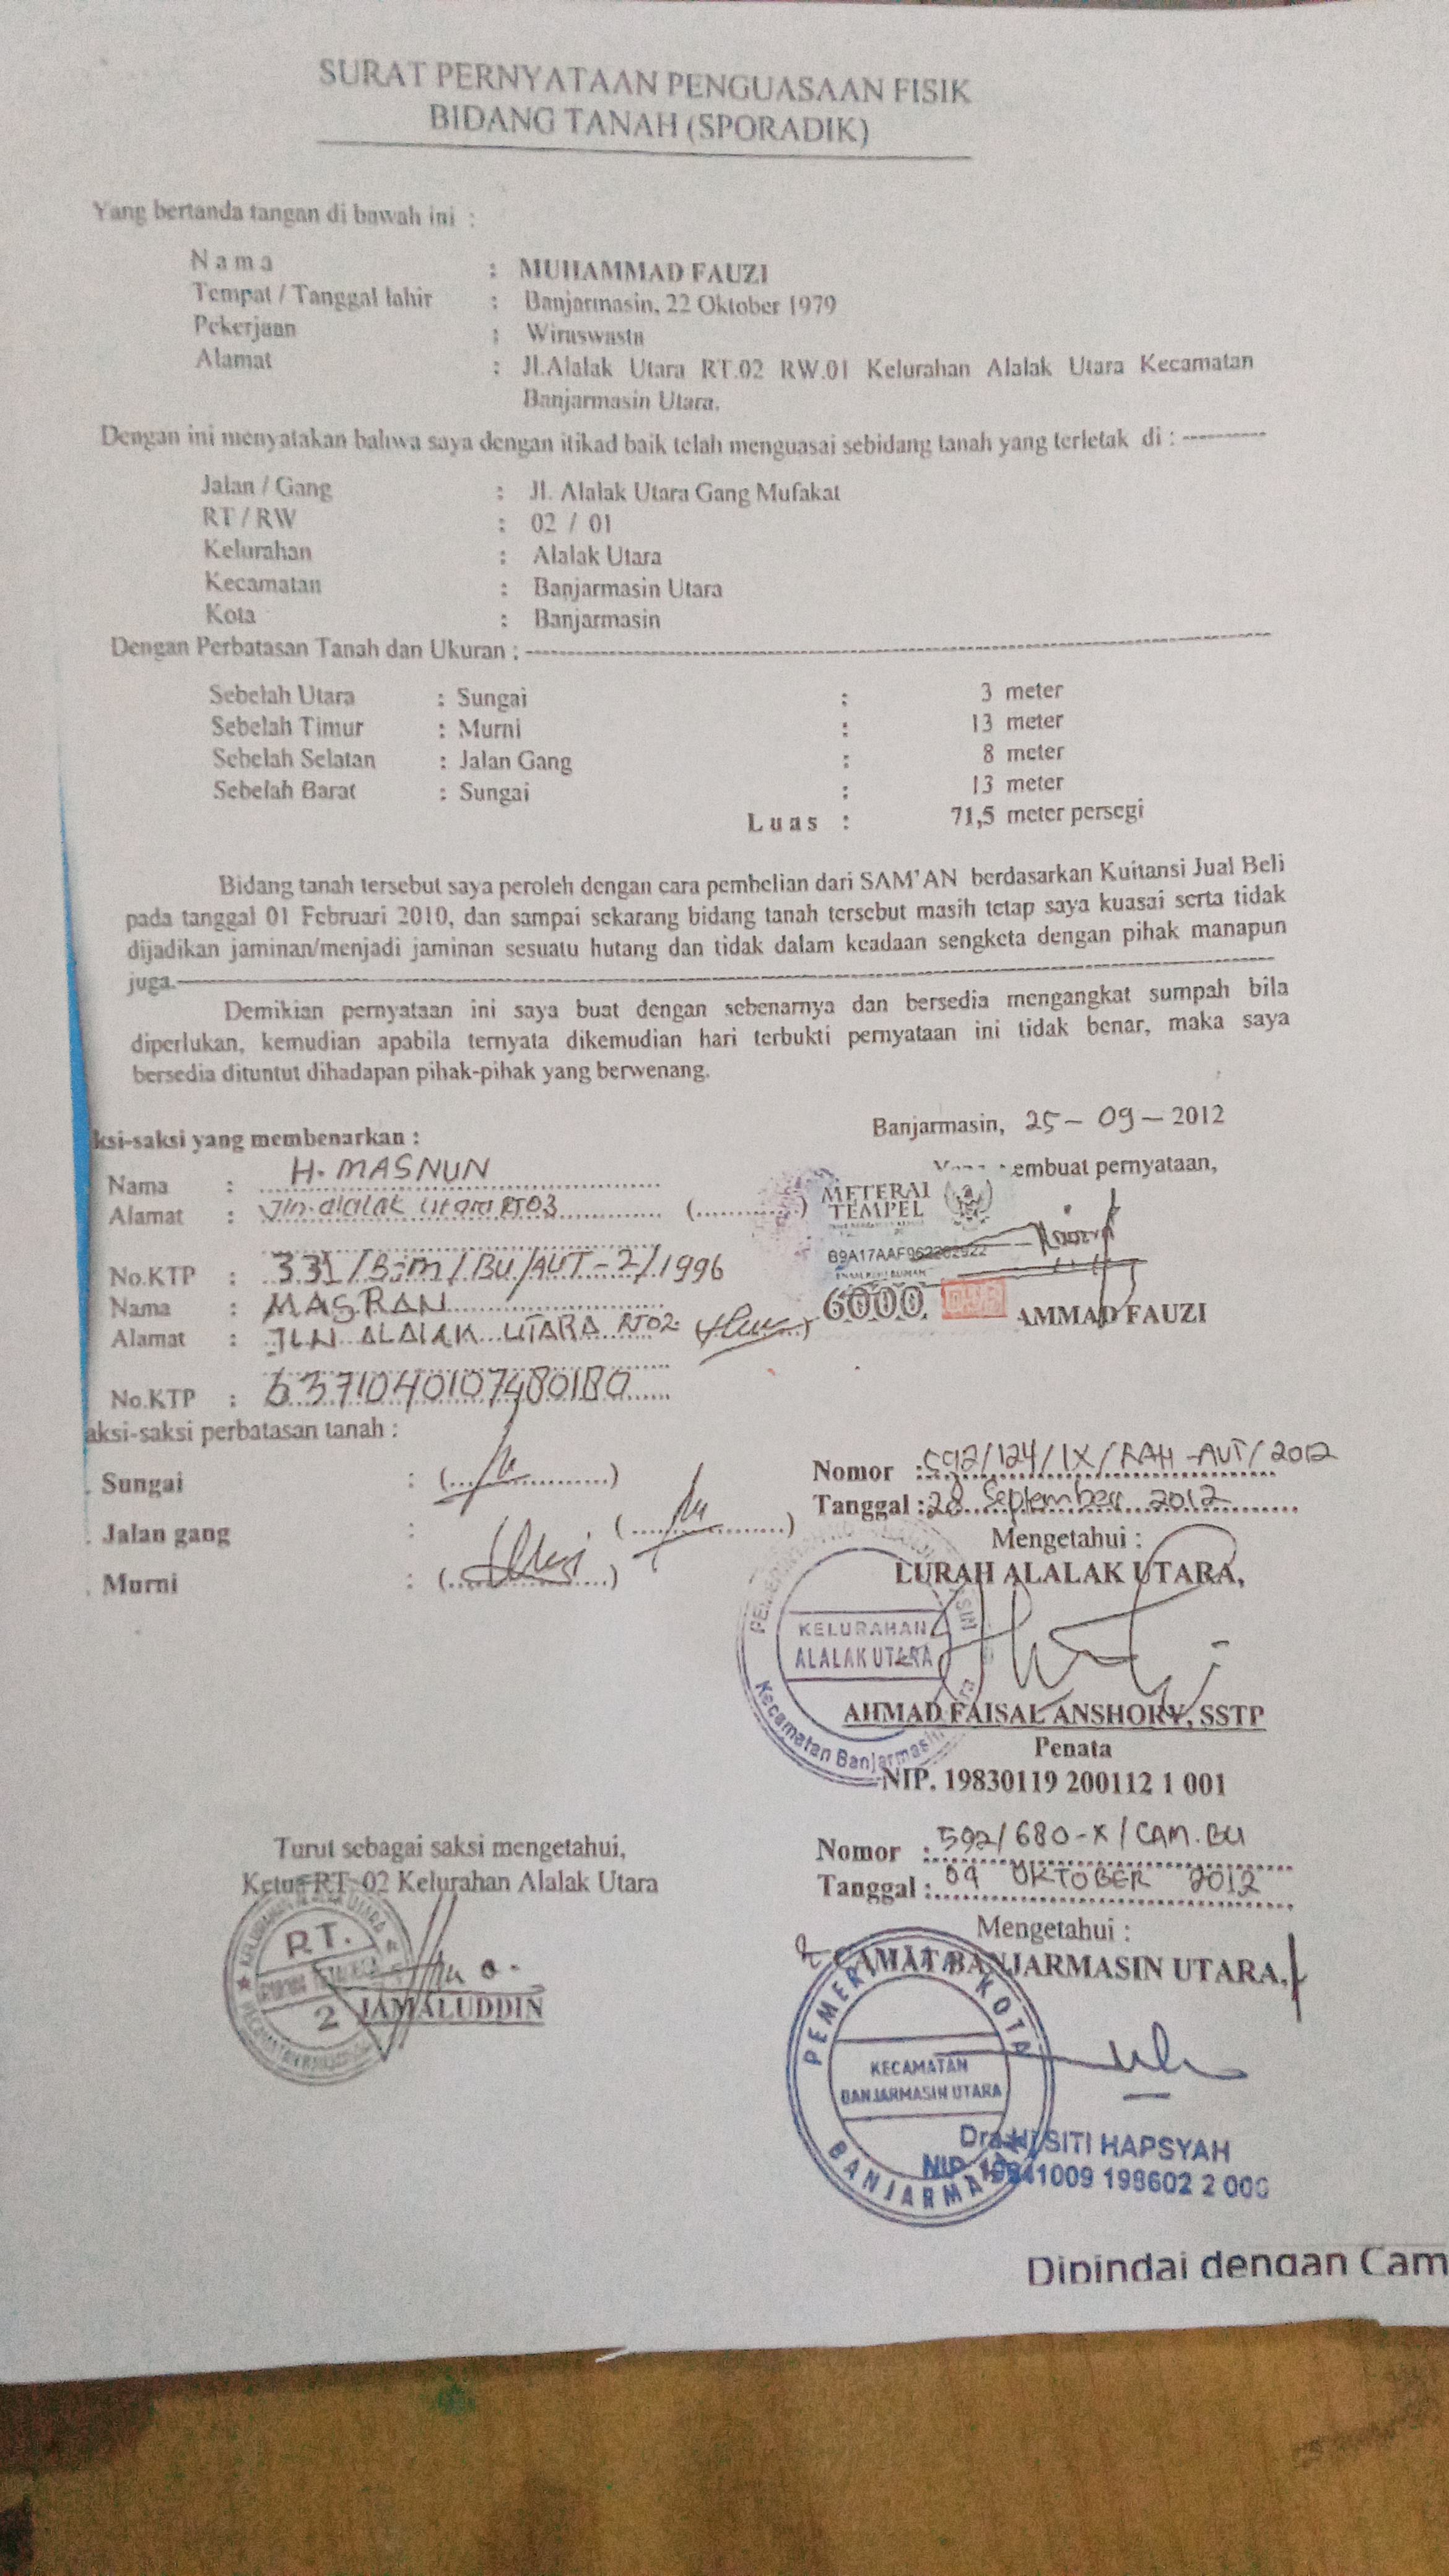 SURAT PERNYATAAN PENGUASAAN FISIK
BIDANG TANAH (SPORADIK)
Yang bertanda tangan di bawah ini :
N a m a : MUHAMMAD FAUZI
Tempat / Tanggal lahir : Banjarmasin, 22 Oktober 1979
Pekerjaan : Wiraswasta
Alamat : Jl.Alalak Utara RT.02 RW.01 Kelurahan Alalak Utara Kecamatan
Banjarmasin Utara.
Dengan ini menyatakan bahwa saya dengan itikad baik telah menguasai sebidang tanah yang terletak di : ----------
Jalan / Gang : Jl. Alalak Utara Gang Mufakat
RT / RW : 02 / 01
Kelurahan : Alalak Utara
Kecamatan : Banjarmasin Utara
Kota : Banjarmasin
Dengan Perbatasan Tanah dan Ukuran : ----------
Sebelah Utara : Sungai : 3 meter
Sebelah Timur : Murni : 13 meter
Sebelah Selatan : Jalan Gang : 8 meter
Sebelah Barat : Sungai : 13 meter
L u a s : 71,5 meter persegi
Bidang tanah tersebut saya peroleh dengan cara pembelian dari SAM'AN berdasarkan Kuitansi Jual Beli
pada tanggal 01 Februari 2010, dan sampai sekarang bidang tanah tersebut masih tetap saya kuasai serta tidak
dijadikan jaminan/menjadi jaminan sesuatu hutang dan tidak dalam keadaan sengketa dengan pihak manapun
juga.----------
Demikian pernyataan ini saya buat dengan sebenarnya dan bersedia mengangkat sumpah bila
diperlukan, kemudian apabila ternyata dikemudian hari terbukti pernyataan ini tidak benar, maka saya
bersedia dituntut dihadapan pihak-pihak yang berwenang.
Banjarmasin, 25 - 09 - 2012
ksi-saksi yang membenarkan :
embuat pernyataan,
Nama : H. MASNUN
Alamat : Jln. alalak utara RT03 (............)
METERAI
TEMPEL
No.KTP : 331/BJm/BU/AUT-2/1996
Nama : MASRAN
6000
Alamat : JLN ALALAK UTARA RT02.
AMMAD FAUZI
No.KTP : 6371040107480180
aksi-saksi perbatasan tanah :
Sungai : (............)
Jalan gang : (............)
Murni : (............)
Nomor : 592/124/IX/RAH-AUT/2012
Tanggal : 28 September 2012
Mengetahui :
LURAH ALALAK UTARA,
KELURAHAN
ALALAK UTARA
Kecamatan Banjarmasin
AHMAD FAISAL ANSHORY, SSTP
Penata
NIP. 19830119 200112 1 001
Turut sebagai saksi mengetahui,
Ketua RT. 02 Kelurahan Alalak Utara
RT.
2
JAMALUDDIN
Nomor : 592/680-X/CAM.BU
Tanggal : 09 OKTOBER 2012
Mengetahui :
CAMAT BANJARMASIN UTARA,
PEMERINTAH KOTA
KECAMATAN
BANJARMASIN UTARA
BANJARMASIN
Dra.Hj.SITI HAPSYAH
Dipindai dengan Cam